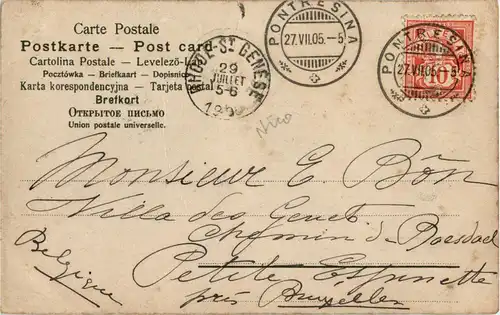 Carte Postale
Postkarte — Post card
Cartolina Postale — Levelező-Lap
Pocztówka — Briefkaart — Dopisnice
Karta korespondencyjna — Tarjeta postal
Brefkort
ОТКРЫТОЕ ПИСЬМО
Union postale universelle.
RHODE-ST GENESE
29
JUILLET
5-6
PONTRESINA
27.VII.05.–5
PONTRESINA
27.VII.05.–5
10
Monsieur E Bôn
Villa des Genets
Chemin de
Petite Espinette
près Bruxelles
Belgique